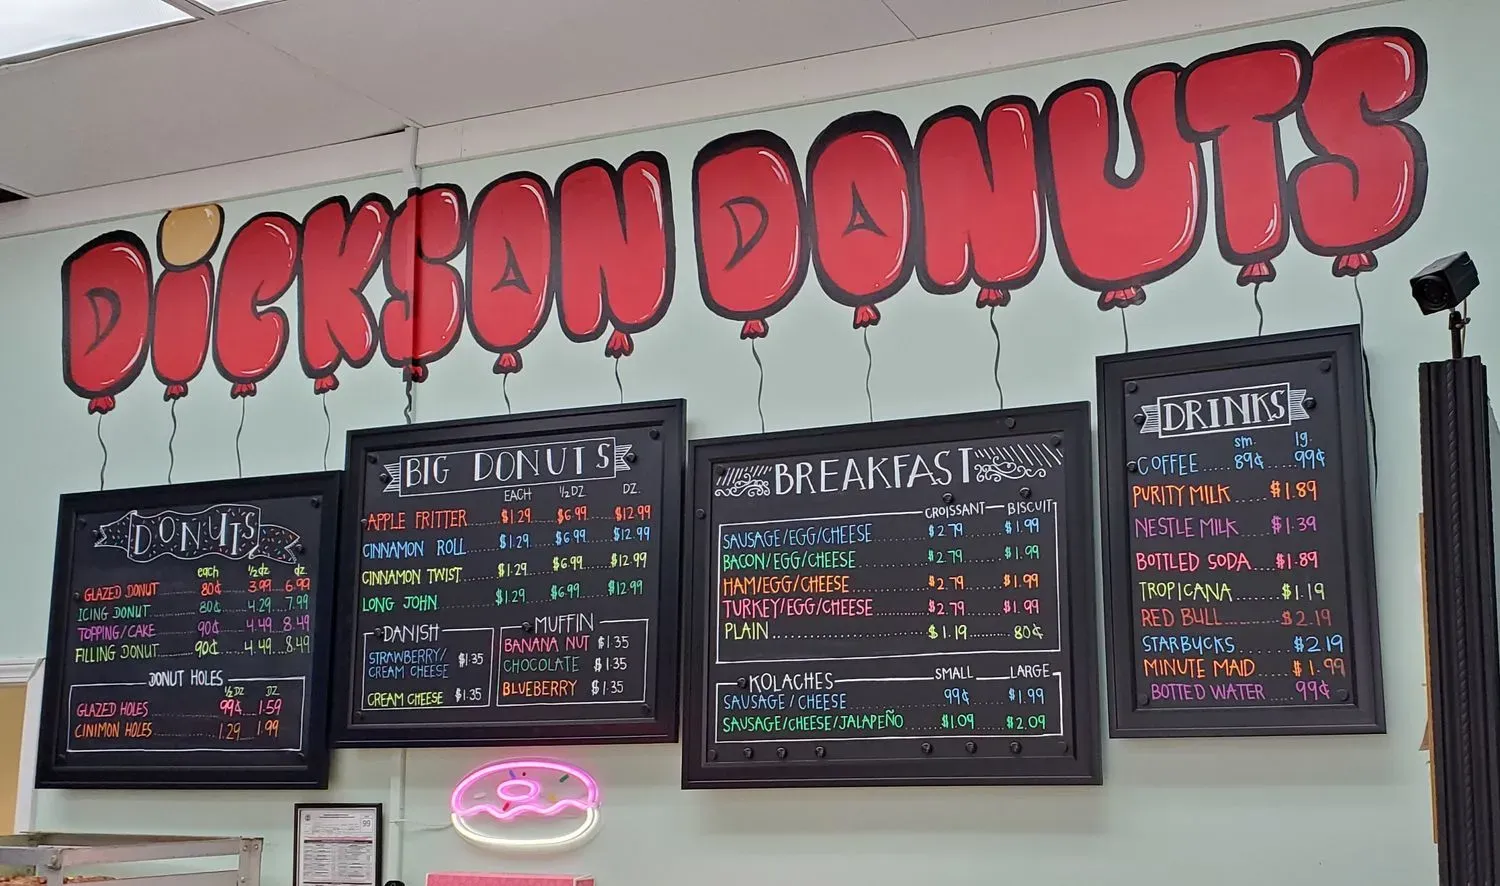 DiCKSON DONUTS
DONUTS
each ½dz dz
GLAZED DONUT 80¢ 3.99 6.99
ICING DONUT 80¢ 4.29 7.99
TOPPING/CAKE 90¢ 4.49 8.49
FILLING DONUT 90¢ 4.49 8.49
DONUT HOLES
½DZ DZ
GLAZED HOLES 99¢ 1.59
CINIMON HOLES 1.29 1.99
BIG DONUTS
EACH ½DZ DZ.
APPLE FRITTER $1.29 $6.99 $12.99
CINNAMON ROLL $1.29 $6.99 $12.99
CINNAMON TWIST $1.29 $6.99 $12.99
LONG JOHN $1.29 $6.99 $12.99
DANISH
STRAWBERRY/
CREAM CHEESE $1.35
CREAM CHEESE $1.35
MUFFIN
BANANA NUT $1.35
CHOCOLATE $1.35
BLUEBERRY $1.35
BREAKFAST
CROISSANT BISCUIT
SAUSAGE/EGG/CHEESE $2.79 $1.99
BACON/EGG/CHEESE $2.79 $1.99
HAM/EGG/CHEESE $2.79 $1.99
TURKEY/EGG/CHEESE $2.79 $1.99
PLAIN $1.19 80¢
KOLACHES SMALL LARGE
SAUSAGE/CHEESE 99¢ $1.99
SAUSAGE/CHEESE/JALAPEÑO $1.09 $2.09
DRINKS
sm. lg.
COFFEE 89¢ 99¢
PURITY MILK $1.89
NESTLE MILK $1.39
BOTTLED SODA $1.89
TROPICANA $1.19
RED BULL $2.19
STARBUCKS $2.19
MINUTE MAID $1.99
BOTTED WATER 99¢
99